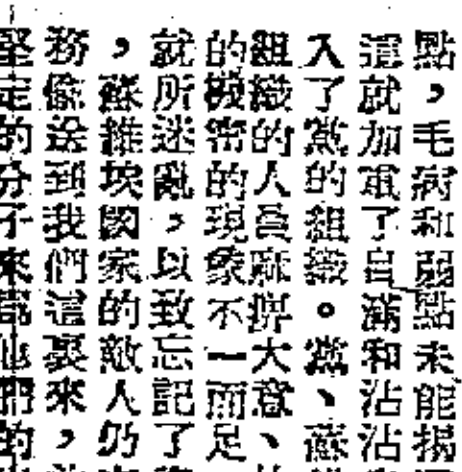 點，毛病和弱點未能揭
這就加重了自滿和沾沾
入了黨的組織。黨、蘇
組織的人員麻痹大意、
的機密的現象不一而足
就所迷亂，以致忘記了
，蘇維埃國家的敵人仍
務像送到我們這裏來，
堅定的分子來當他們的